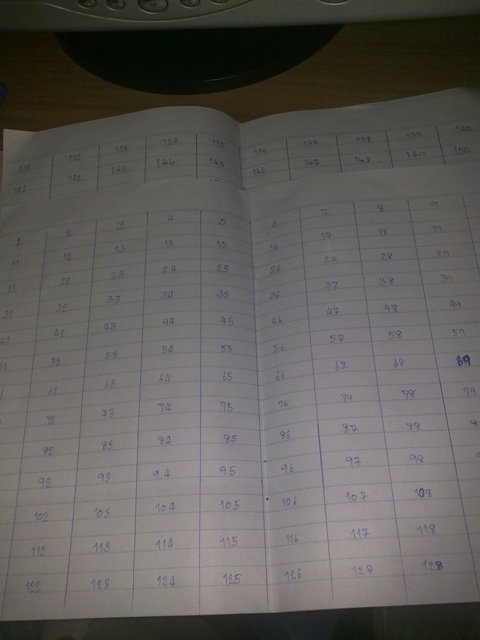 131 132 133 134 135 136 137 138 139 140
141 142 143 144 145 146 147 148 149 150
1 2 3 4 5 6 7 8 9
11 12 13 14 15 16 17 18 19
21 22 23 24 25 26 27 28 29
31 32 33 34 35 36 37 38 39
41 42 43 44 45 46 47 48 49
52 53 54 55 56 57 58 59
62 63 64 65 66 67 68 69
72 73 74 75 76 77 78 79
82 83 84 85 86 87 88
92 93 94 95 96 97 98
102 103 104 105 106 107 108
112 113 114 115 116 117 118
122 123 124 125 126 127 128